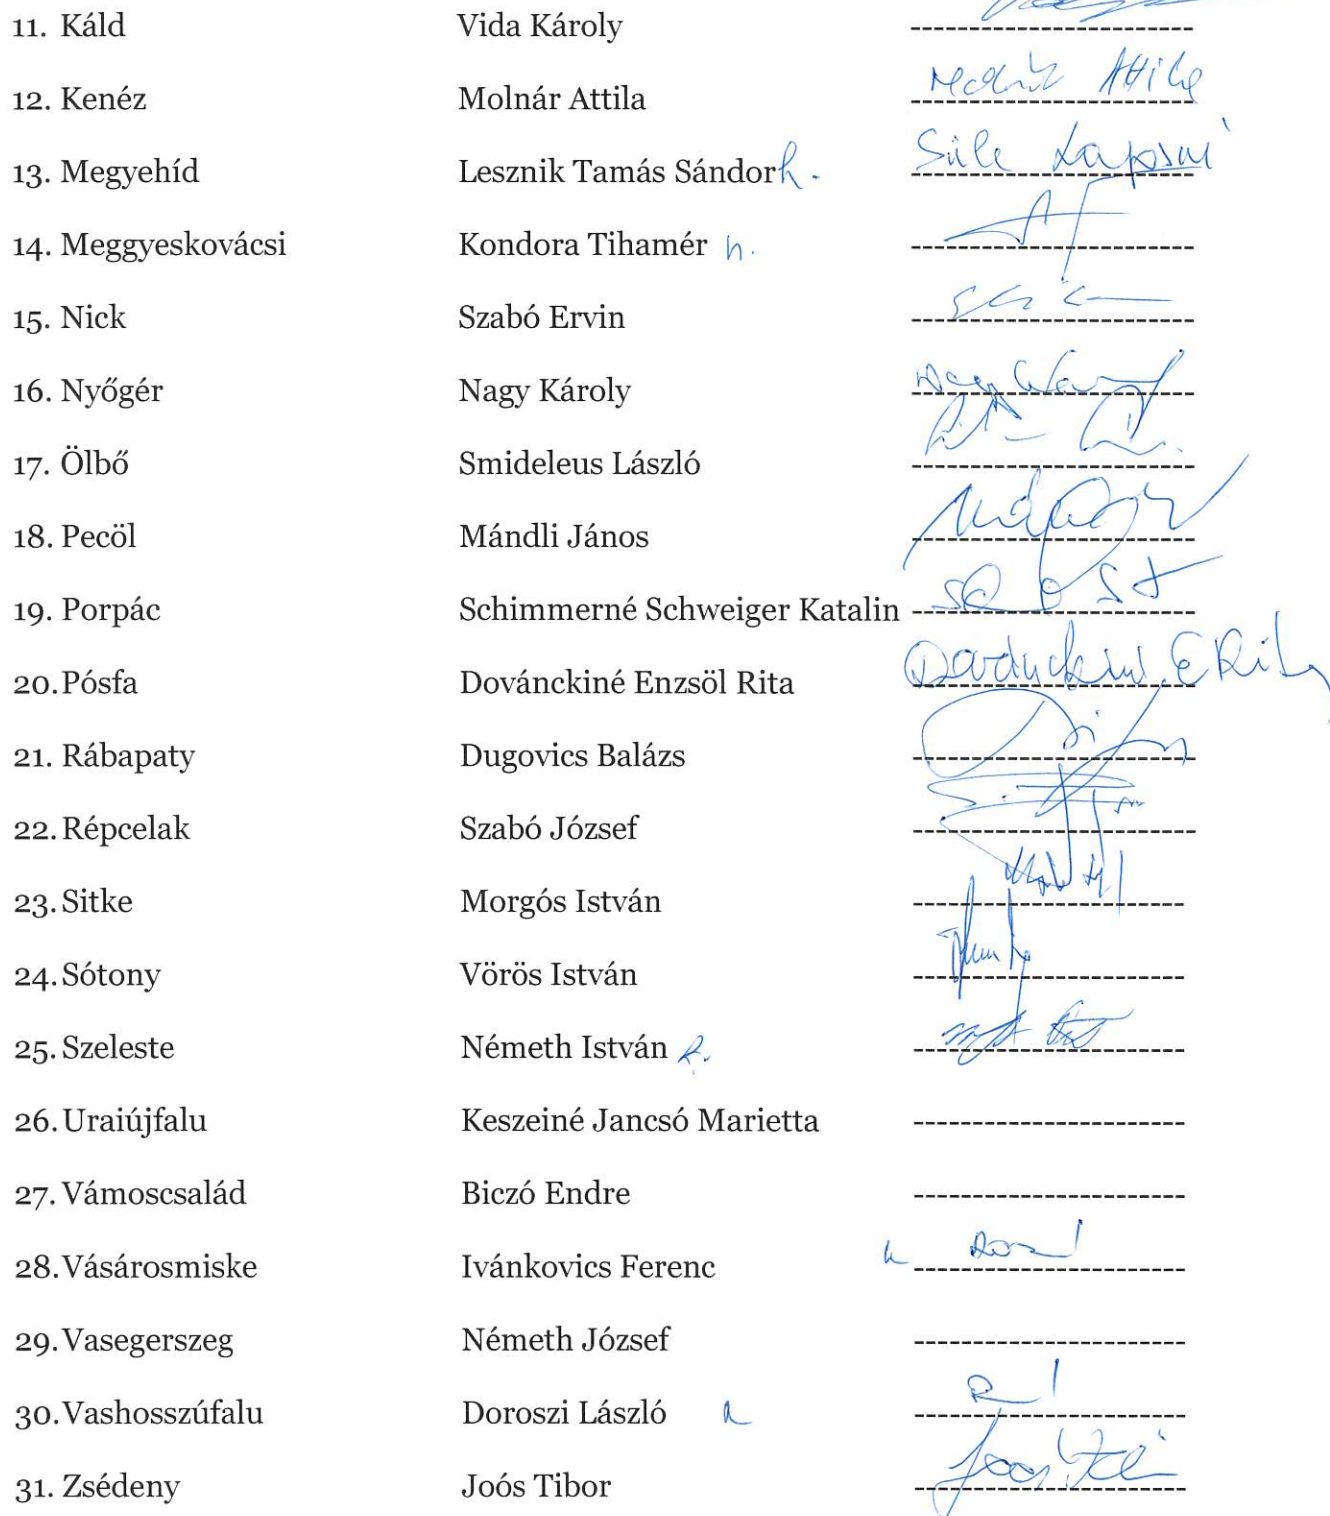 11. Káld Vida Károly
12. Kenéz Molnár Attila Molnár Attila
13. Megyehíd Lesznik Tamás Sándor h. Süle Lajosné
14. Meggyeskovácsi Kondora Tihamér h.
15. Nick Szabó Ervin
16. Nyőgér Nagy Károly
17. Ölbő Smideleus László
18. Pecöl Mándli János
19. Porpác Schimmerné Schweiger Katalin
20. Pósfa Dovánckiné Enzsöl Rita
21. Rábapaty Dugovics Balázs
22. Répcelak Szabó József
23. Sitke Morgós István
24. Sótony Vörös István
25. Szeleste Németh István
26. Uraiújfalu Keszeiné Jancsó Marietta
27. Vámoscsalád Biczó Endre
28. Vásárosmiske Ivánkovics Ferenc
29. Vasegerszeg Németh József
30. Vashosszúfalu Doroszi László
31. Zsédeny Joós Tibor